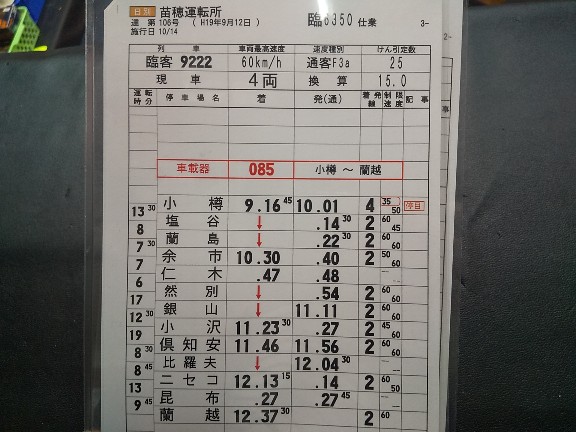 日別 苗穂運転所 臨8350仕業 3-
達 第106号 ( H19年9月12日 )
施行日 10/14
列車 車両最高速度 速度種別 けん引定数
臨客 9222 60km/h 通客F3a 25
現車 4両 換算 15.0
運転時分 停車場名 着 発(通) 着発線 制限速度 記事
車載器 085 小樽 ～ 蘭越
小樽 9.16 45 10.01 4 35 50 停目
13 30
塩谷 ↓ .14 30 2 60 45
8
蘭島 ↓ .22 30 2 60 60
7 30
余市 10.30 .40 2 50 60
7
仁木 .47 .48
6
然別 ↓ .54 2 60 60
17
銀山 ↓ 11.11 2 60 60
12 30
小沢 11.23 30 .27 2 45 60
19
倶知安 11.46 11.56 2 60 60
8 30
比羅夫 ↓ 12.04 30
8 45
ニセコ 12.13 15 .14 2 60 50
13
昆布 .27 .27 45
9 45
蘭越 12.37 30 2 60